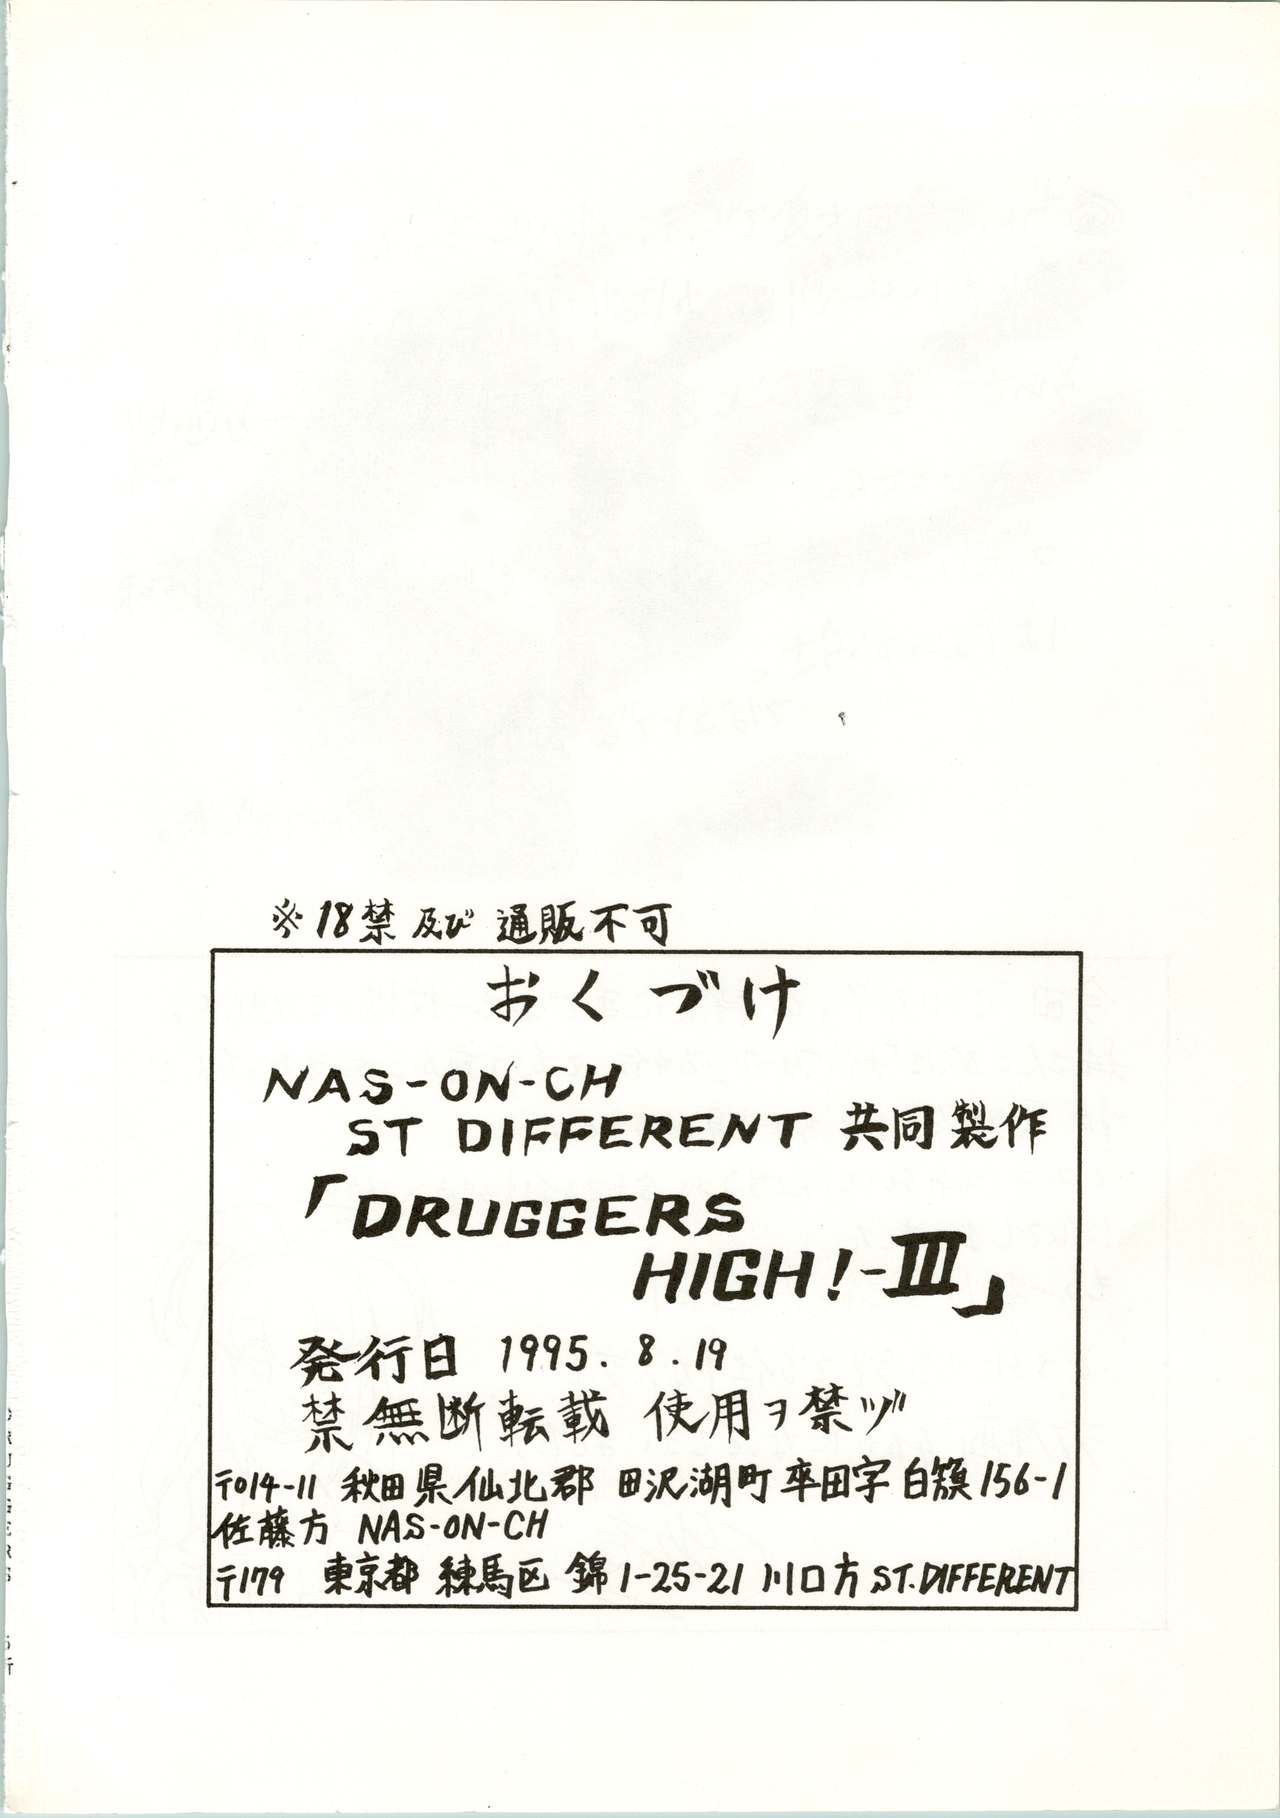 ※18禁及び通販不可
おくづけ
NAS-ON-CH
ST DIFFERENT 共同製作
「DRUGGERS
HIGH!-III」
発行日 1995.8.19
禁無断転載 使用ヲ禁ヅ
〒014-11 秋田県仙北郡 田沢湖町卒田字白籏156-1
佐藤方 NAS-ON-CH
〒179 東京都 練馬区 錦1-25-21 川口方 ST.DIFFERENT